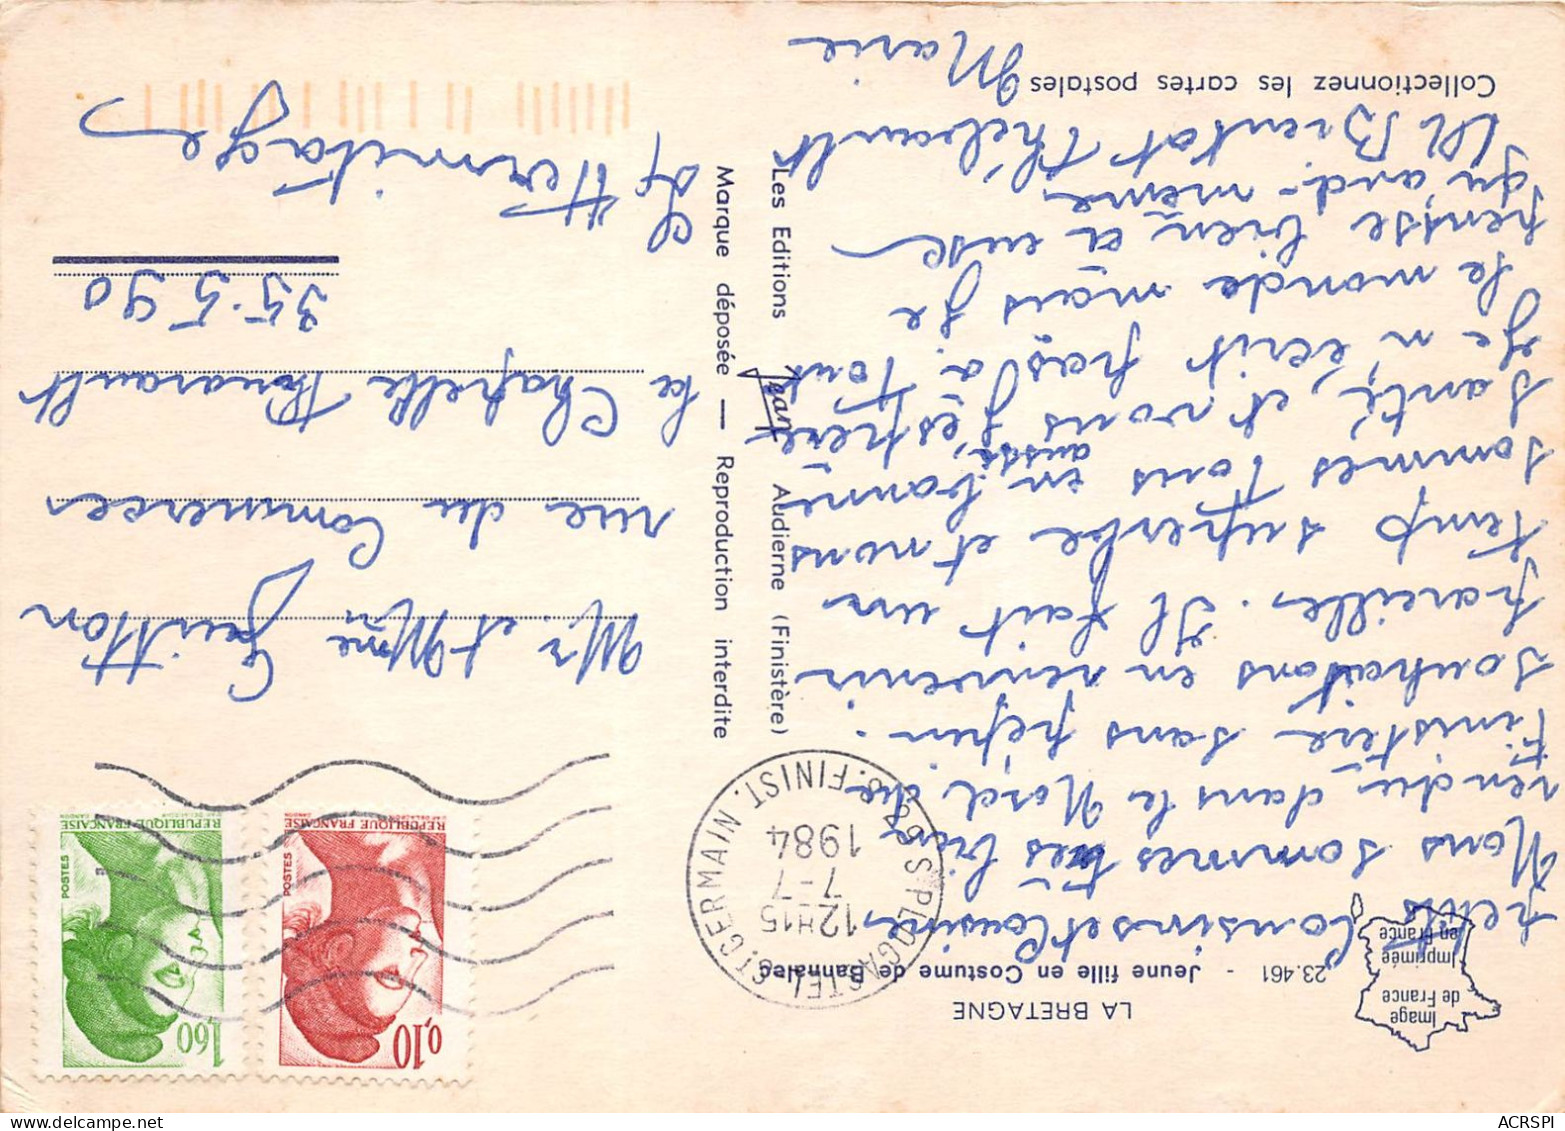 LA BRETAGNE
23.461 - Jeune fille en Costume de Bannalec
Image
de France
Imprimée
en France
petits Cousins et Cousine
Nous sommes très bien
rendu dans le Nord du
Finistère sans pépin.
souhaitons en revenir
pareilles. Il fait un
temp superbe et nous
sommes tous en bonne
santé, et vous aussi, j'espère
Je n'écrit pas à tous
le monde mais je
pensse bien a euse
quand-même
A Bientot Thébault
Marie
Collectionnez les cartes postales
Les Editions Jean Audierne (Finistère)
Marque déposée — Reproduction interdite
ST GERMAIN S/PLOGASTEL
12H15
7-7
1984
29 S. FINIST.
0,10
POSTES
REPUBLIQUE FRANÇAISE
GANDON
1,60
POSTES
REPUBLIQUE FRANÇAISE
GANDON
Mr. et Mme Guitton
rue du Commerces
La Chapelle Thouarault
35.590
L'Hermitage
ACRSPI